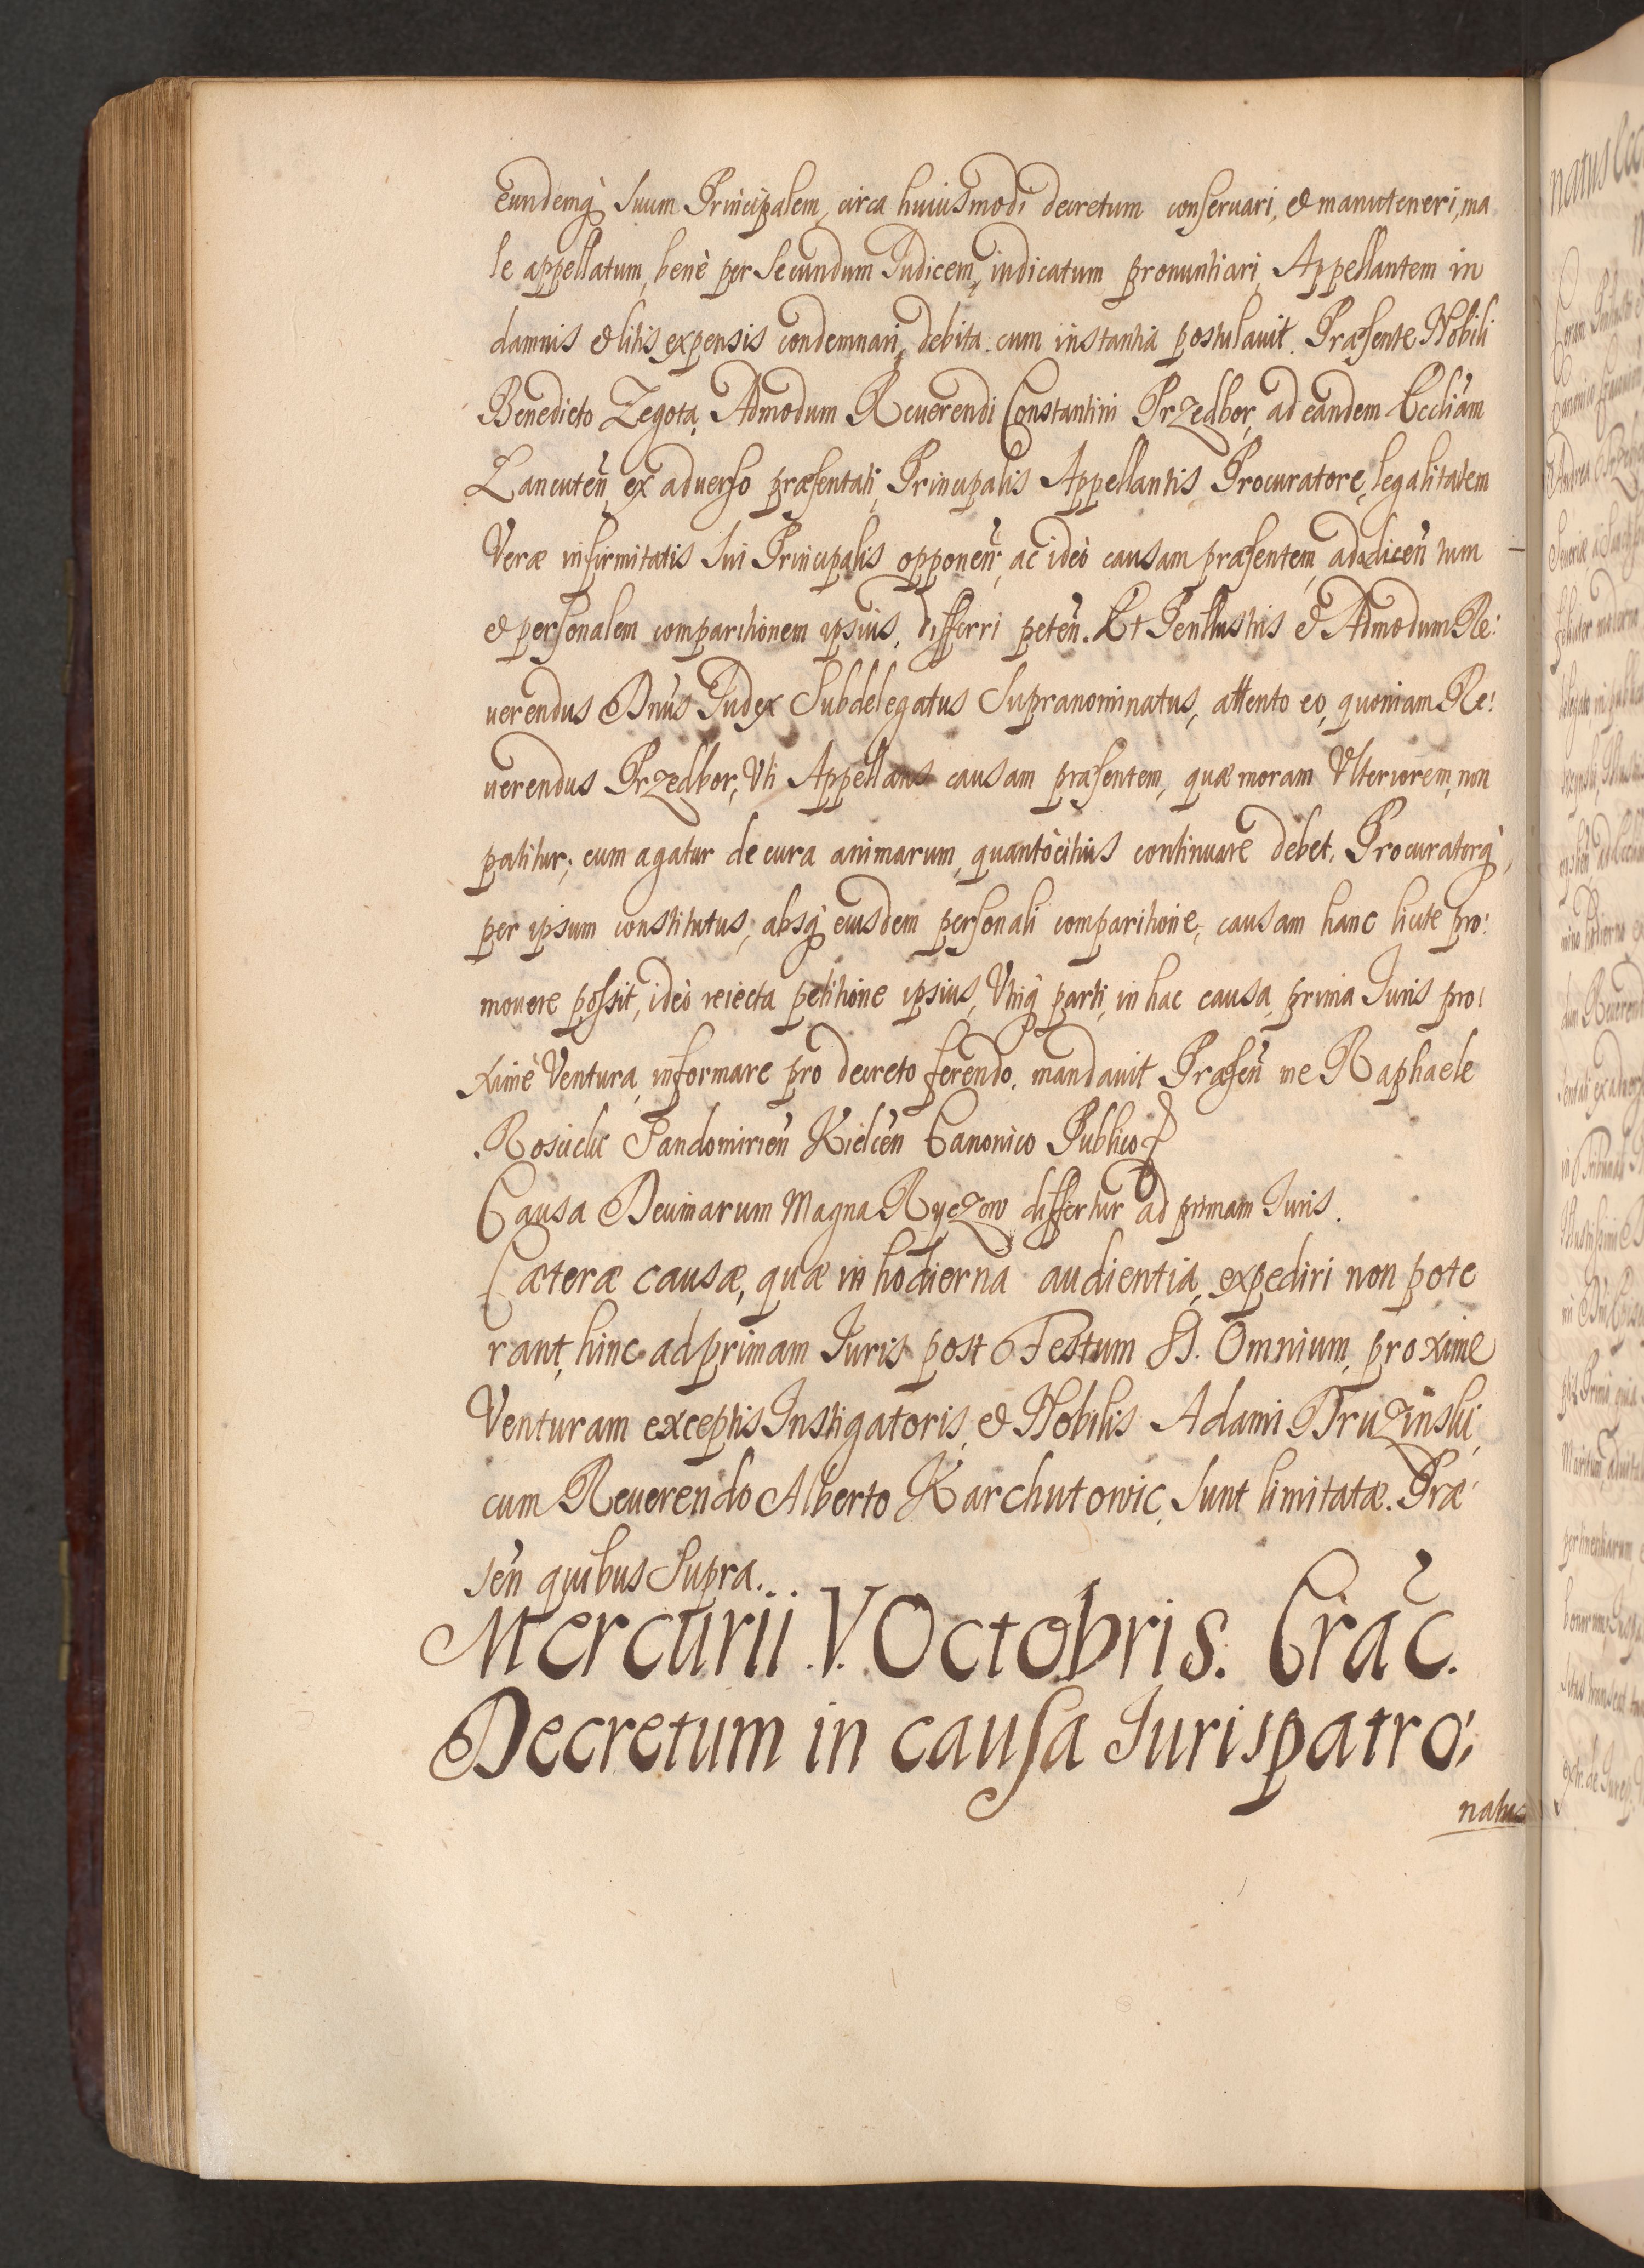 eundemq̀ suum Principalem, circa huiusmodi decretum conseruari, & manuteneri, ma
le appellatum, benè per Secundum Judicem, iudicatum pronuntiari, Appellantem in
damnis & litis expensis condemnari, debita cum instantia postulauit. Præsente Nobili
Benedicto Zegota, Admodum Reuerendi Constantini Przedbor, ad eandem Eccliam
Lancuteñ ex aduerso præsentati, Principalis Appellantis Procuratore, legalitatem
Veræ infirmitatis sui Principalis opponeñ, ac ideò causam præsentem, ad
& personalem comparitionem ipsius, differri peteñ. Et Perillustris & Admodum Re:
uerendus Dnus Judex Subdelegatus Supranominatus, attento eo, quoniam Re:
uerendus Przedbor, Vti Appellans causam præsentem, quæ moram Vlteriorem, non
patitur; cum agatur de cura animarum, quantòcitius continuare debet, Procuratorq̀,
per ipsum constitutus, absq̀ eiusdem personali comparitione, causam hanc licite pro:
mouere possit, ideò reiecta petitione ipsius, Vtriq̀ parti, in hac causa, prima Juris pro:
ximè Ventura, informare pro decreto ferendo, mandauit. Præseñ me Raphaele
Sandomirieñ Kielceñ Canonico Publico
Causa Decimarum Magna Ryczow differtur ad primam Juris.
Cæteræ causæ, quæ in hodierna audientia, expediri non pote
rant, hinc ad primam Juris post Festum SS. Omnium, proxime
Venturam exceptis Instigatoris, & Nobilis Adami Druzinski,
cum Reuerendo Alberto Karchutowic, sunt limitatæ. Præ:
señ quibus Supra.
Mercurii. V. Octobris. Crac̃.
Decretum in causa Jurispatro:
natus